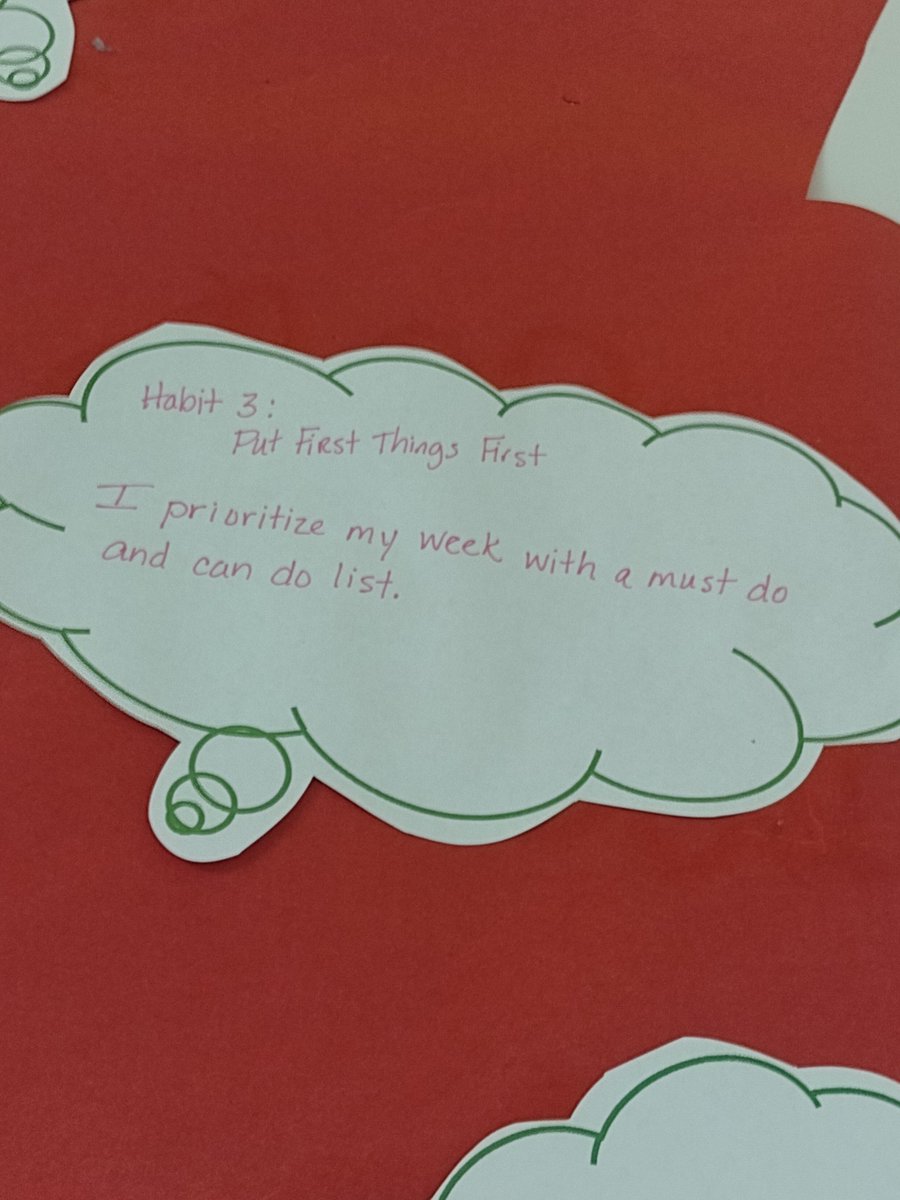 Habit 3:
Put First Things First
I prioritize my week with a must do
and can do list.